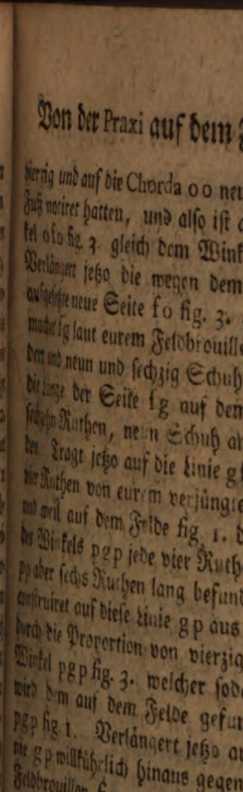 Von der Praxi auf dem
vierzig und auf die Chorda o o neu
Fuß notiret hatten, und also ist
kel o f o fig. 3. gleich dem Wink
Verlängert jetzo die wegen dem
aufgesetzte neue Seite f o fig. 3.
machet f g laut eurem Feldbrouill
und neun und sechzig Schuh
die Länge der Seite f g auf dem
Ruthen, neun Schuh ab
Tragt jetzo auf die Linie g
vier Ruthen von eurem verjüngte
und weil auf dem Felde fig. 1. d
des Winkels p g p jede vier Ruth
p p aber sechs Ruthen lang befund
construiret auf diese Linie g p aus
durch die Proportion von vierzig
Winkel p g p fig. 3. welcher sod
wird dem auf dem Felde gefun
p g p fig. 1. Verlängert jetzo
nie g p willkührlich hinaus gegen
Feldbrouillon